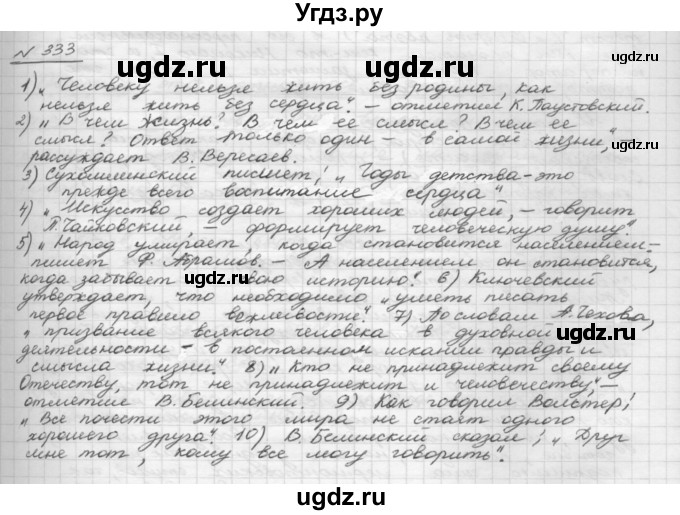 Угдз.ру
№ 333
1) „Человеку нельзя жить без родины, как
нельзя жить без сердца", – отметил К. Паустовский.
2) „В чем жизнь? В чем ее смысл? В чем ее
смысл? Ответ только один – в самой жизни", –
рассуждает В. Вересаев.
3) Сухомлинский пишет: „Годы детства – это
прежде всего воспитание сердца"
4) „Искусство создает хороших людей, – говорит
П. Чайковский, – формирует человеческую душу".
5) „Народ умирает, когда становится населением –
пишет Ф. Абрамов. – А населением он становится,
когда забывает свою историю". 6) Ключевский
утверждает, что необходимо „уметь писать
первое правило вежливости". 7) По словам А. Чехова,
„призвание всякого человека в духовной
деятельности – в постоянном искании правды и
смысла жизни". 8) „Кто не принадлежит своему
Отечеству, тот не принадлежит и человечеству", –
отметил В. Белинский. 9) Как говорил Вольтер:
„Все почести этого мира не стоят одного
хорошего друга". 10) В. Белинский сказал: „Друг
мне тот, кому все могу говорить".
ugdz.ru
ugdz.ru
ugdz.ru
ugdz.ru
ugdz.ru
ugdz.ru
ugdz.ru
ugdz.ru
ugdz.ru
ugdz.ru
ugdz.ru
ugdz.ru
ugdz.ru